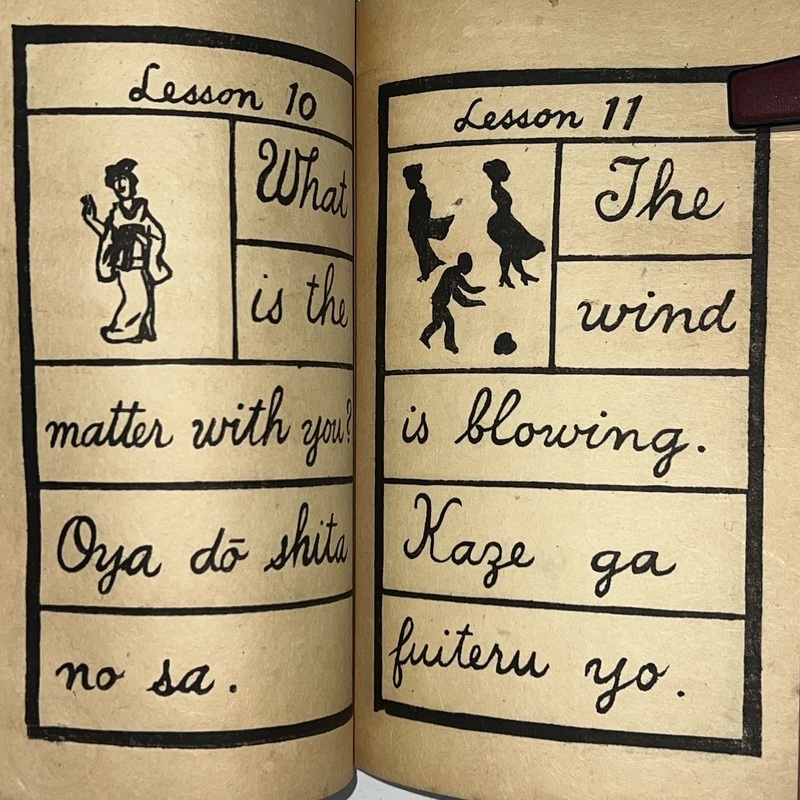 Lesson 10
What
is the
matter with you?
Oya dō shita
no sa.
Lesson 11
The
wind
is blowing.
Kaze ga
fuiteru yo.